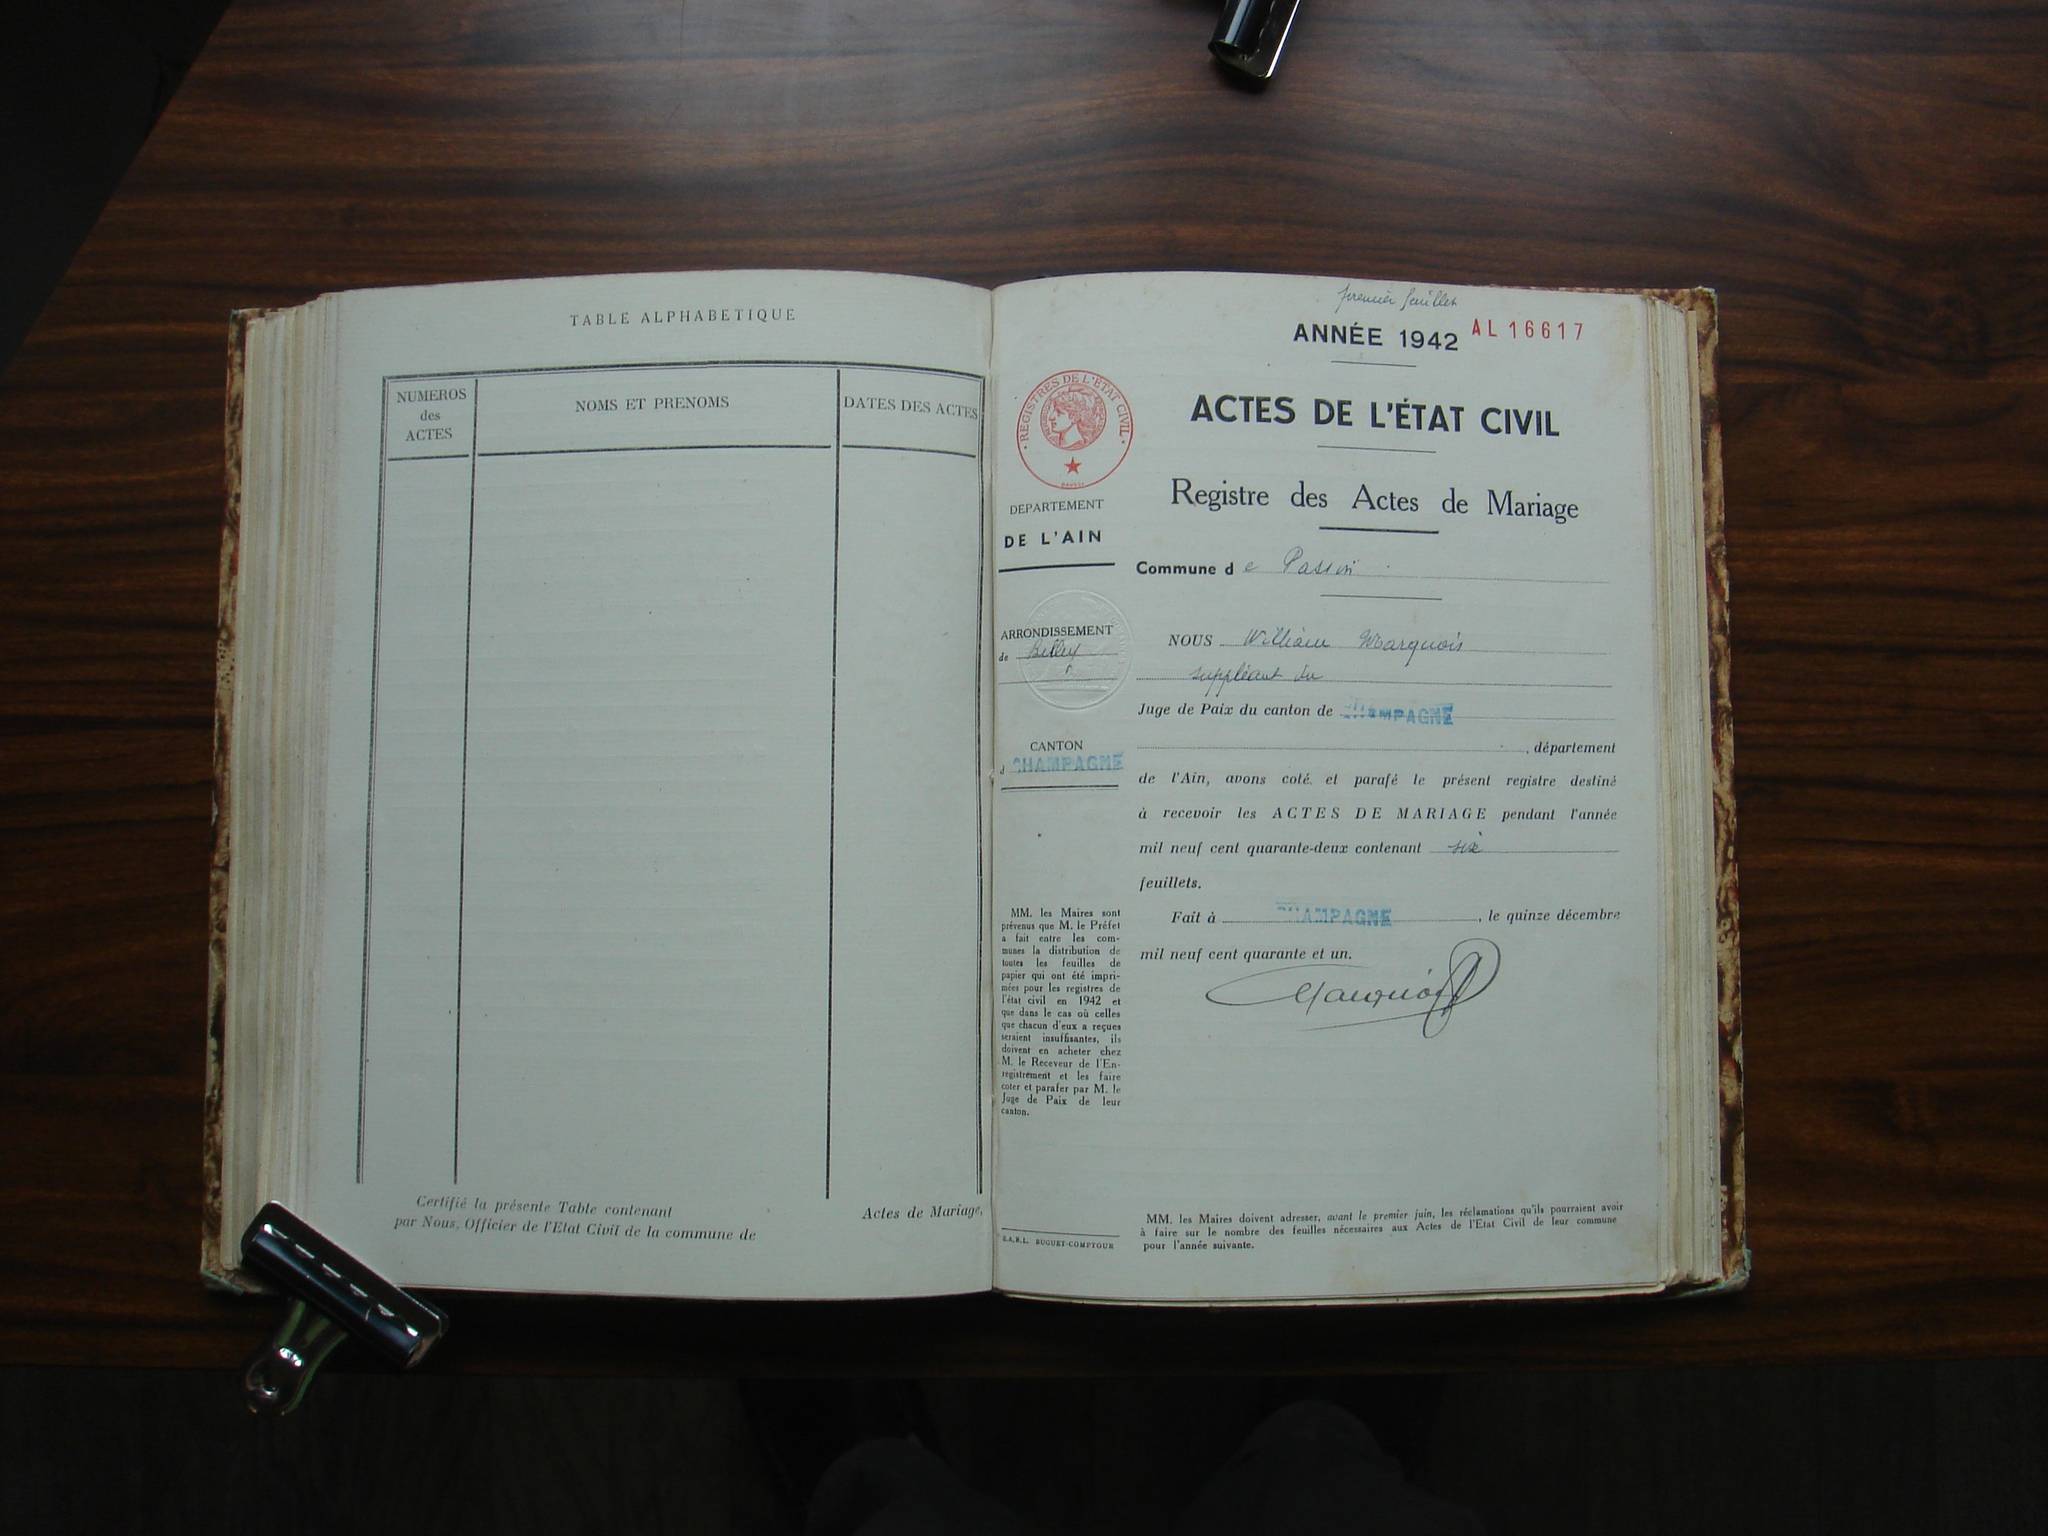 TABLE ALPHABETIQUE
NUMEROS
des
ACTES
NOMS ET PRENOMS
DATES DES ACTES
Certifié la présente Table contenant Actes de Mariage,
par Nous, Officier de l'Etat Civil de la commune de
premier feuillet
ANNÉE 1942 AL 16617
REGISTRES DE L'ÉTAT CIVIL
ACTES DE L'ÉTAT CIVIL
Registre des Actes de Mariage
DEPARTEMENT
DE L'AIN
Commune de Passin
ARRONDISSEMENT
de Belley
CANTON
d CHAMPAGNE
NOUS William Marquois
suppléant du
Juge de Paix du canton de CHAMPAGNE
, département
de l'Ain, avons coté et parafé le présent registre destiné
à recevoir les ACTES DE MARIAGE pendant l'année
mil neuf cent quarante-deux contenant six
feuillets.
Fait à CHAMPAGNE, le quinze décembre
mil neuf cent quarante et un.
MM. les Maires sont
prévenus que M. le Préfet
a fait entre les com-
munes la distribution de
toutes les feuilles de
papier qui ont été impri-
mées pour les registres de
l'état civil en 1942 et
que dans le cas où celles
que chacun d'eux a reçues
seraient insuffisantes, ils
doivent en acheter chez
M. le Receveur de l'En-
registrement et les faire
coter et parafer par M. le
Juge de Paix de leur
canton.
S.A.R.L. BUGUET-COMPTOUR
MM. les Maires doivent adresser, avant le premier juin, les réclamations qu'ils pourraient avoir
à faire sur le nombre des feuilles nécessaires aux Actes de l'Etat Civil de leur commune
pour l'année suivante.